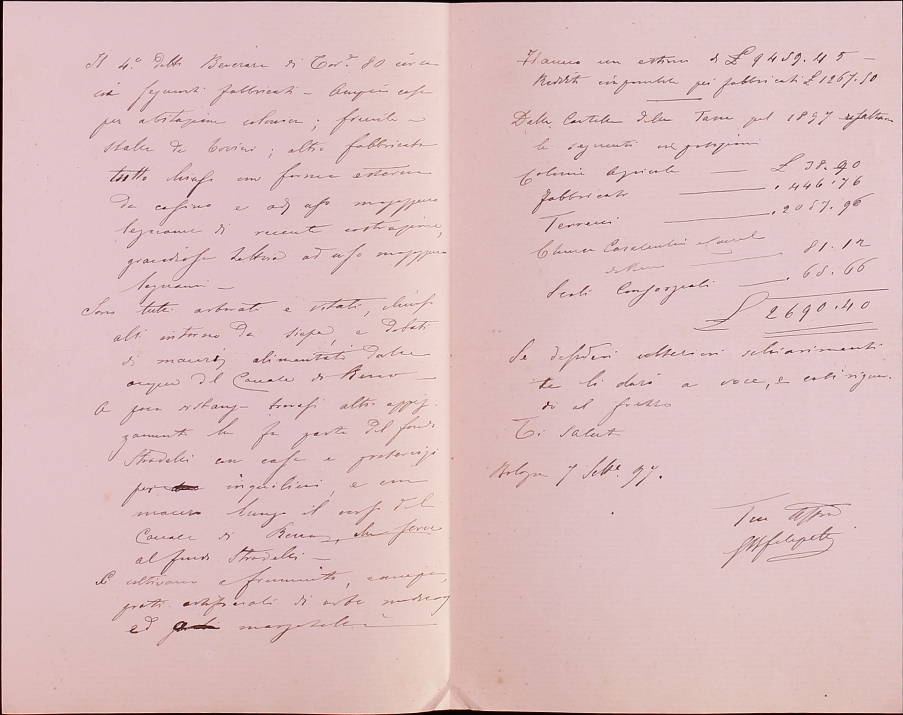 Il 4.° detto Beverara di Tor.e 80 circa
coi seguenti fabbricati – Ampia casa
per abitazione colonica; fienile e
stalla da bovini; altro fabbricato
tutto chiuso con forma esterna
da casino e ad uso magazzino
legname di recente costruzione,
grandiosa tettoia ad uso magazzino
legnami –
Sono tutti arborati e vitati, chiusi
all'intorno da siepe, e dotati
di maceri alimentati dalle
acque del Canale di Reno –
A poca distanza trovasi altro appez-
zamento che fa parte del fondo
Stradelli con casa e
per inquilini, e con
macero lungo il corso del
Canale di Reno, che serve
al fondo Stradelli –
Si coltivano a frumento, canapa,
prati artificiali di erba medica
ed
Hanno un estimo di £ 9459.45 –
Reddito imponibile pei fabbricati £ 1267.50
Dalle Cartelle delle Tasse pel 1897 risultano
le seguenti imposizioni
Colonie Agricole — £ 38.90
Fabbricati — . 446.76
Terreni — . 2057.96
Chiusa Casalecchio e Canale
di Reno — . 81.12
Scoli Consorziali — . 65.66
£ 2690.40
Se desideri ulteriori schiarimenti
te li darò a voce, e così riguar-
do al prezzo
Ti saluto
Bologna 7 Sett.e 97.
Tuo Affmo